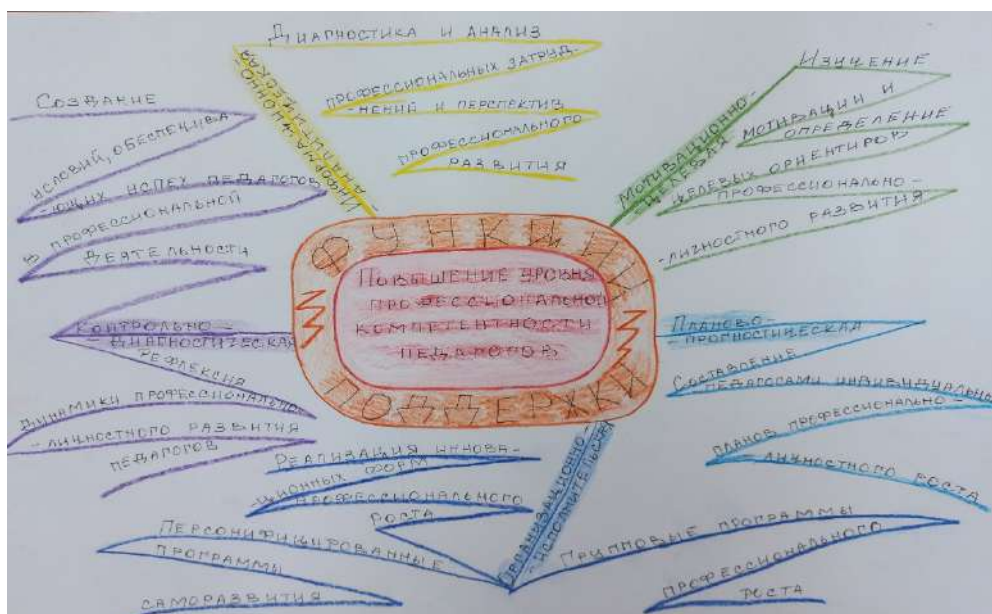 ФУНКЦИИ
ПОДДЕРЖКИ
ПОВЫШЕНИЕ УРОВНЯ
ПРОФЕССИОНАЛЬНОЙ
КОМПЕТЕНТНОСТИ
ПЕДАГОГОВ
ИНФОРМАЦИОННО-
АНАЛИТИЧЕСКАЯ
ДИАГНОСТИКА И АНАЛИЗ
ПРОФЕССИОНАЛЬНЫХ ЗАТРУД-
-НЕНИЙ И ПЕРСПЕКТИВ
ПРОФЕССИОНАЛЬНОГО
РАЗВИТИЯ
МОТИВАЦИОННО-
-ЦЕЛЕВАЯ
ИЗУЧЕНИЕ
МОТИВАЦИИ И
ОПРЕДЕЛЕНИЕ
ЦЕЛЕВЫХ ОРИЕНТИРОВ
ПРОФЕССИОНАЛЬНО-
-ЛИЧНОСТНОГО РАЗВИТИЯ
ПЛАНОВО-
-ПРОГНОСТИЧЕСКАЯ
СОСТАВЛЕНИЕ
ПЕДАГОГАМИ ИНДИВИДУАЛЬНО
ПЛАНОВ ПРОФЕССИОНАЛЬНО-
-ЛИЧНОСТНОГО РОСТА
ОРГАНИЗАЦИОННО-
-ИСПОЛНИТЕЛЬСКАЯ
ГРУППОВЫЕ ПРОГРАММЫ
ПРОФЕССИОНАЛЬНОГО
РОСТА
РЕАЛИЗАЦИЯ ИННОВА-
-ЦИОННЫХ ФОРМ
ПРОФЕССИОНАЛЬНОГО
РОСТА
ПЕРСОНИФИЦИРОВАННЫЕ
ПРОГРАММЫ
САМОРАЗВИТИЯ
КОНТРОЛЬНО-
-ДИАГНОСТИЧЕСКАЯ
СОЗДАНИЕ
УСЛОВИЙ, ОБЕСПЕЧИВА
-ЮЩИХ УСПЕХ ПЕДАГОГОВ
В ПРОФЕССИОНАЛЬНОЙ
ДЕЯТЕЛЬНОСТИ
РЕФЛЕКСИЯ
ДИНАМИКИ ПРОФЕССИОНАЛЬНО-
-ЛИЧНОСТНОГО РАЗВИТИЯ
ПЕДАГОГОВ